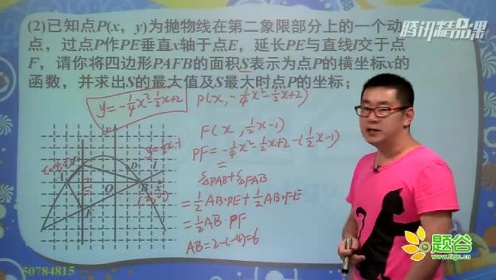 腾讯精品课
(2)已知点P(x，y)为抛物线在第二象限部分上的一个动
点，过点P作PE垂直x轴于点E，延长PE与直线l交于点
F，请你将四边形PAFB的面积S表示为点P的横坐标x的
函数，并求出S的最大值及S最大时点P的坐标；
y=-¼x²-½x+2
P(x,-¼x²-½x+2)
F(x,½x-1)
PF=-¼x²-½x+2-(½x-1)
y=½x-1
=S△PAB+S△FAB
=½AB·PE+½AB·FE
=½AB·PF
AB=2-(-4)=6
50784815
题谷
www.tigu.cn